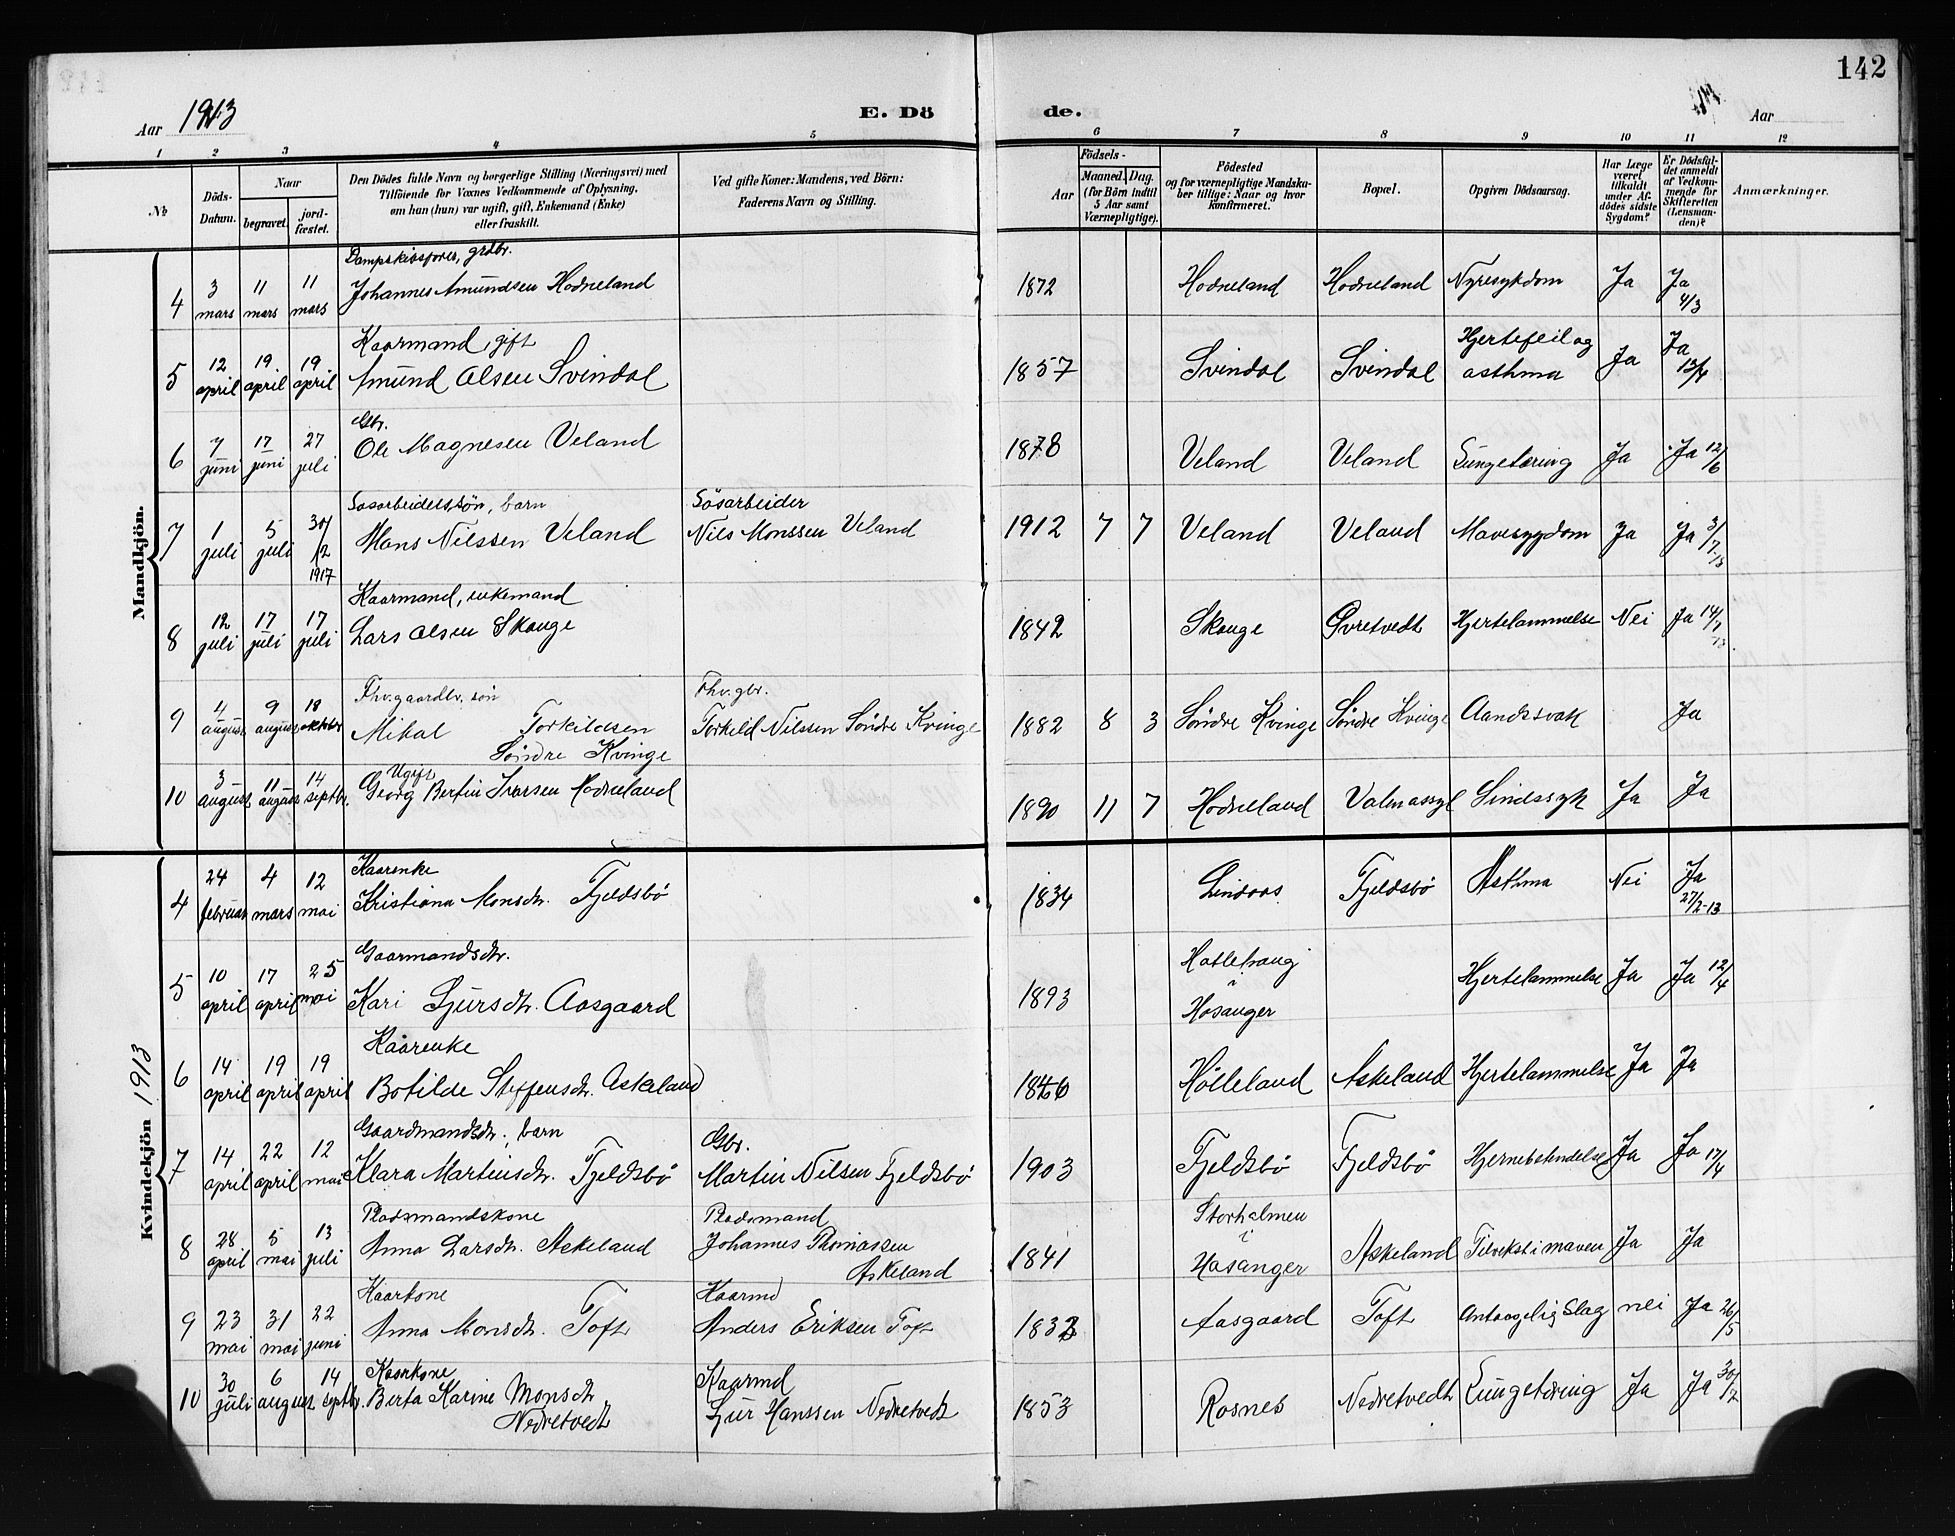 142
Aar 1913
E. Dö
de.
Aar
1 2 3 4 5 6 7 8 9 10 11 12
№
Döds-Datum.
Naar
begravet.
jord-fæstet.
Den Dödes fulde Navn og borgerlige Stilling (Næringsvei) med
Tilföiende for Voxnes Vedkommende af Oplysning,
om han (hun) var ugift, gift, Enkemand (Enke)
eller fraskilt.
Ved gifte Koner: Mandens, ved Börn:
Faderens Navn og Stilling.
Födsels-
Aar
Maaned. Dag.
(for Börn indtil
5 Aar samt
Værnepligtige).
Födested
og for værnepligtige Mandska-
ber tillige: Naar og hvor
konfirmeret.
Bopæl.
Opgiven Dödsaarsag.
Har Læge
været
tilkaldt
under Af-
dödes sidste
Sygdom?
Er Dödsfal-
det anmeldt
af Vedkom-
mende for
Skifteretten
(Lensman-
den)?
Anmærkninger.
Mandkjön.
4 3 mars 11 mars 11 mars
Johannes Amundsen Hodneland
1872 Hodneland Hodneland Nyresykdom Ja Ja 4/3
5 12 april 19 april 19 april
Kaarmand, gift
Amund Olsen Svindal
1857 Svindal Svindal Hjertefeil og asthma Ja Ja 12/4
6 7 juni 17 juni 27 juli
Gbr.
Ole Magnesen Veland
1878 Veland Veland Lungetæring Ja Ja 12/6
7 1 juli 5 juli 30/12 1917
Søsarbeiderssøn, barn
Mons Nilssen Veland
Søsarbeider
Nils Monssen Veland
1912 7 7 Veland Veland Mavesygdom Ja Ja 3/7-13
8 12 juli 17 juli 17 juli
Kaarmand, enkemand
Lars Olsen Skauge
1842 Skauge Øvretvedt Hjertelammelse Nei Ja 14/7-13
9 4 august 9 august 18 oktbr
Fhv. gaardbr. søn
Mikal Torkildsen
Søndre Kvinge
Fhv. gbr.
Torkild Nilssen Søndre Kvinge
1882 8 3 Søndre Kvinge Søndre Kvinge Aandssvak Ja
10 3 august 11 august 14 septbr.
Ugift
Georg Bertin Ivarsen Hodneland
1890 11 7 Hodneland Sindssyk Ja Ja
Kvindekjön 1913
4 24 februar 4 mars 12 mai
Kaarenke
Kristiana Monsdtr. Fjeldsbø
1834 Lindaas Fjeldsbø Asthma Nei Ja 27/2-13
5 10 april 17 april 25 mai
Gaarmandsdtr.
Kari Sjursdtr. Aasgaard
1893 Hatlehaug i Hosanger Hjertelammelse Ja Ja 12/4
6 14 april 19 april 19 april
Kaarenke
Botilde Steffensdtr. Askeland
1846 Hølleland Askeland Hjertelammelse Ja Ja
7 14 april 22 april 12 mai
Gaardmandsdtr., barn
Klara Martinsdtr. Fjeldsbø
Gbr.
Martin Nilsen Fjeldsbø
1903 Fjeldsbø Fjeldsbø Hjernebetendelse Ja Ja 17/4
8 28 april 5 mai 13 juli
Pladsmandskone
Anna Larsdtr. Askeland
Pladsmand
Johannes Thomassen
Askeland
1841 Storholmen i Hosanger Askeland Tilvekst i maven Ja Ja
9 23 mai 31 mai 22 juni
Kaarkone
Anna Monsdtr. Toft
Kaarmd
Anders Eriksen Toft
1832 Aasgaard Toft Antagelig Slag nei Ja 26/5
10 30 juli 6 august 14 septbr.
Kaarkone
Berta Karine Monsdtr
Nedretvedt
Kaarmd
Sjur Hanssen Nedretvedt
1853 Rosnes Nedretvedt Lungetæring Ja Ja 30/7